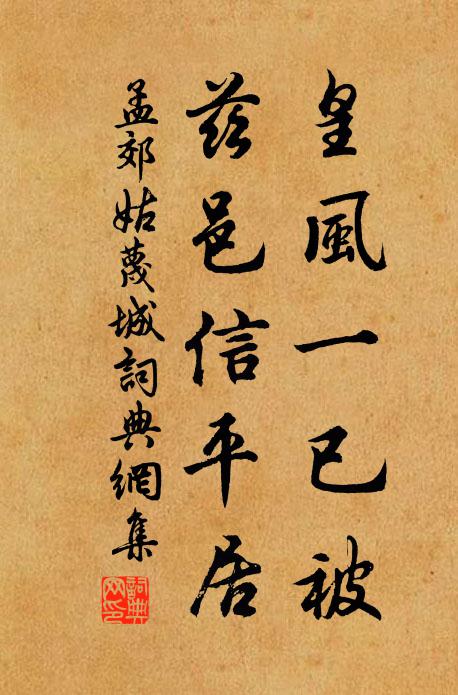 皇風一已被
茲邑信平居
孟郊姑蔑城詞典網集
詞典网印